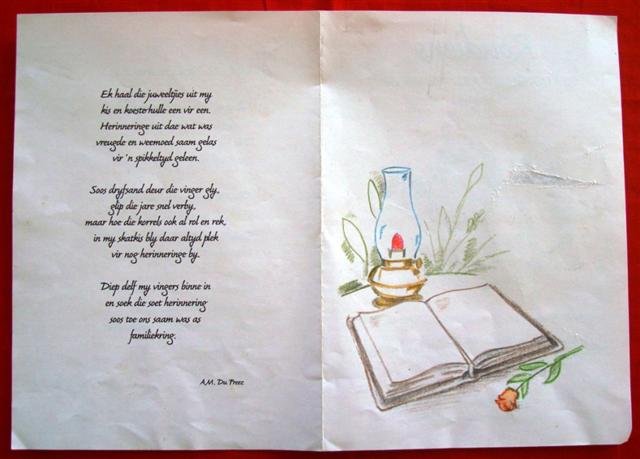 Ek haal die juweeltjies uit my
kis en koesterhulle een vir een.
Herinneringe uit dae wat was
vreugde en weemoed saam gelas
vir 'n spikkeltyd geleen.
Soos dryfsand deur die vinger gly,
glip die jare snel verby,
maar hoe die korrels ook al rol en rek,
in my skatkis bly daar altyd plek
vir nog herinneringe by.
Diep delf my vingers binne in
en soek die soet herinnering
soos toe ons saam was as
familiekring.
A.M. Du Preez